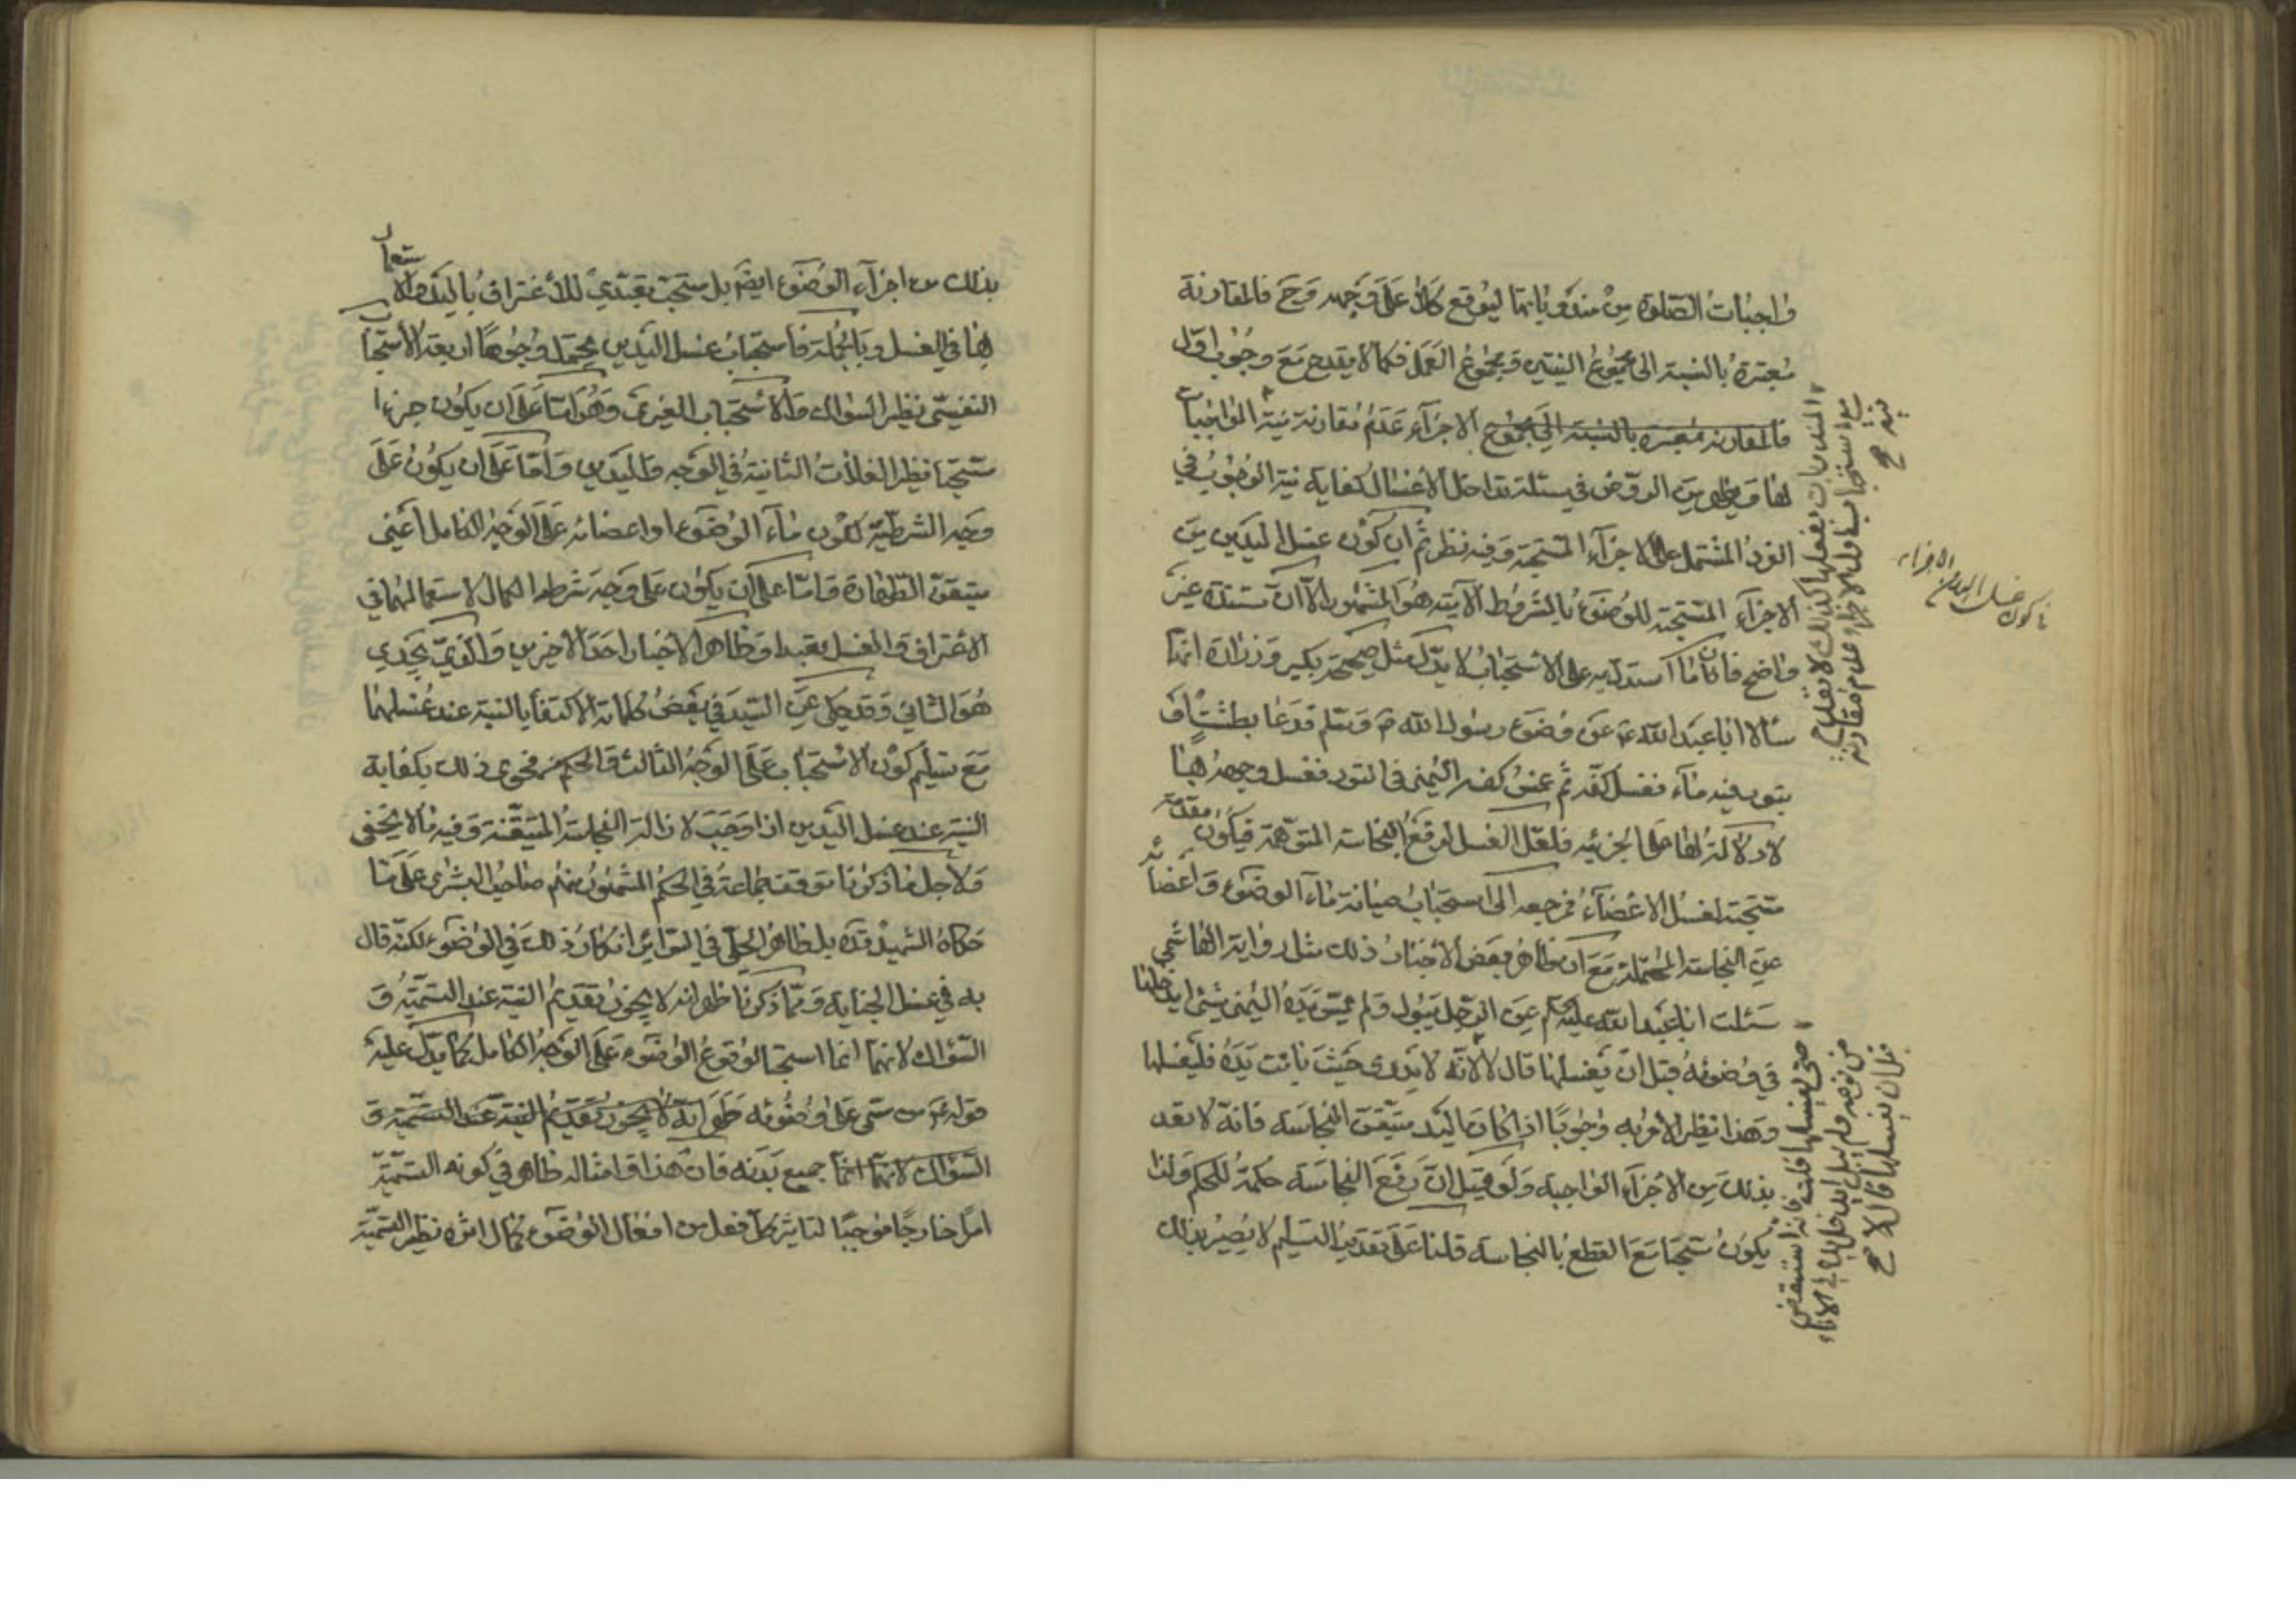 واجبات الصلوة من مندوباتها ليوقع كلا على وجهه وح فالمقارنة
معتبرة بالنسبة الى مجموع النيتين ومجموع العمل فكما لا يقدح مع وجوب اول
فالمقارنة معتبرة بالنسبة الى مجموع الاجزاء عدم مقارنة نية الواجبات
لها في مسئلة تداخل الاغسال كفاية نية الوجوب في
الفرد المشتمل على الاجزاء المستحبة وفيه نظر ثم ان كون غسل اليدين من
الاجزاء المستحبة للوضوء بالشروط الآتية هو المشهور الا ان مستنده غير
واضح فان ما استدل به على الاستحباب لا يدل مثل صحيحة بكير وزرارة انهما
سألا ابا عبد الله ع عن وضوء رسول الله ص وسلم فدعا بطشت او
بتور فيه ماء فغسل كفه ثم غمس كفه اليمنى في التور فغسل وجهه بها
لا دلالة لها على الجزئية فلعل الغسل لرفع النجاسة المتوهمة فيكون مقدمة
مستحبة لغسل الاعضاء فمرجعه الى استحباب صيانة ماء الوضوء واعضائه
عن النجاسة المحتملة مع ان ظاهر بعض الاخبار ذلك مثل رواية الهاشمي
سئلت ابا عبد الله عليه عن الرجل يبول ولم يمس يده اليمنى شئ ايدخلها
في وضوئه قبل ان يغسلها قال لا لانه لا يدرى حيث باتت يده فليغسلها
وهذا نظير الامر به وجوبا اذا كانت اليد متيقن النجاسة فانه لا يعد
بذلك من الاجزاء الواجبة ولو قيل ان رفع النجاسة حكمة للحكم ولذا
يكون مستحبا مع القطع بالنجاسة قلنا على تقدير التسليم لا يصير بذلك
المندوبات بفعلها كذلك لا يقدح
مع استحباب اول الاجزاء عدم مقارنة
نية صح
كون غسل اليدين الاجزاء
حتى يغسلها قلت فانه استيقض
من نومه ولم يبل ايدخل يده في الاناء
قبل ان يغسلها قال لا صح
بذلك من اجزاء الوضوء ايضا بل مستحب تعبدي للاغتراف باليد والاستعمال
لها في الغسل وبالجملة فاستحباب غسل اليدين يحتمل وجوها اربعة الاستحباب
النفسي نظير السواك والاستحباب الغيري وهو اما على ان يكون جزءا
مستحبا نظير الغسلات الثانية في الوجه واليدين واما على ان يكون على
وجه الشرطية لكون ماء الوضوء او اعضائه على الوجه الكامل اعني
متيقن الطهارة واما على ان يكون على وجه شرط الكمال لاستعمالهما في
الاغتراف والغسل تعبدا وظاهر الاخبار احد الاخيرين والذي يجدي
هو الثاني وقد حكى عن السيد في بعض كلماته الاكتفا بالنية عند غسلهما
مع تسليم كون الاستحباب على الوجه الثالث والحكم ذلك بكفاية
النية عند غسل اليدين اذا وجب لازالة النجاسة المتيقنة وفيه ما لا يخفى
ولاجل ما ذكرنا توقف جماعة في الحكم المشهور منهم صاحب البشرى على ما
حكاه الشهيد قده بل ظاهر الحلي في السرائر انكار ذلك في الوضوء لكنه قال
به في غسل الجنابة ومما ذكرنا ظهر انه لا يجوز تقديم النية عند التسمية و
السواك لانهما انما استحبا لوقوع الوضوء على الوجه الكامل كما يدل عليه
قوله ع من سمى على وضوئه طهر انه لا يجوز تقديم النية عند التسمية و
السواك لانهما انما جميع بدنه فان هذا وامثاله ظاهر في كونه التسمية
امرا خارجا موجبا لتاثير كل فعل من افعال الوضوء كمال اثره نظير التسمية